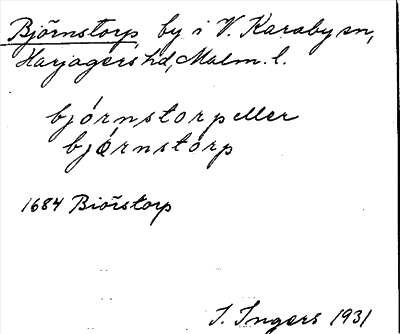 Björnstorp, by i V. Karaby sn,
Harjagers hd, Malm. l.
bjórnstorp eller
bjórnstórp
1684 Biörstorp
I. Ingers 1931